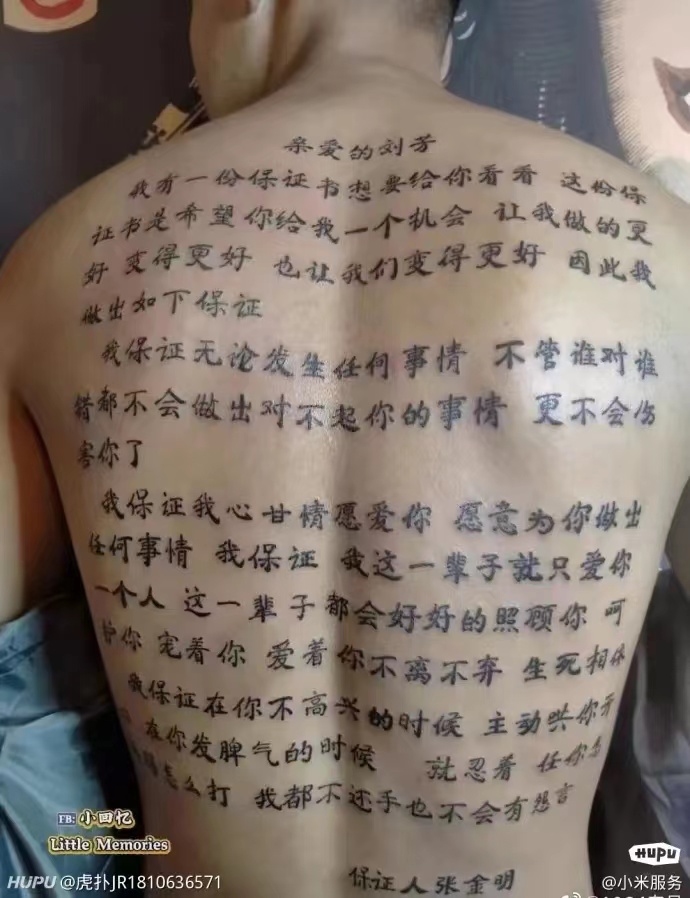 亲爱的刘芳
我有一份保证书想要给你看看 这份保
证书是希望你给我一个机会 让我做的更
好 变得更好 也让我们变得更好 因此我
做出如下保证
我保证无论发生任何事情 不管谁对谁
错都不会做出对不起你的事情 更不会伤
害你了
我保证我心甘情愿爱你 愿意为你做出
任何事情 我保证 我这一辈子就只爱你
一个人 这一辈子都会好好的照顾你 呵
护你 宠着你 爱着你不离不弃 生死相依
我保证在你不高兴的时候 主动哄你开
在你发脾气的时候 就忍着 任你
怎么打 我都不还手也不会有怨言
保证人张金明
FB: 小回忆
Little Memories
HUPU @虎扑JR1810636571
HUPU
@小米服务